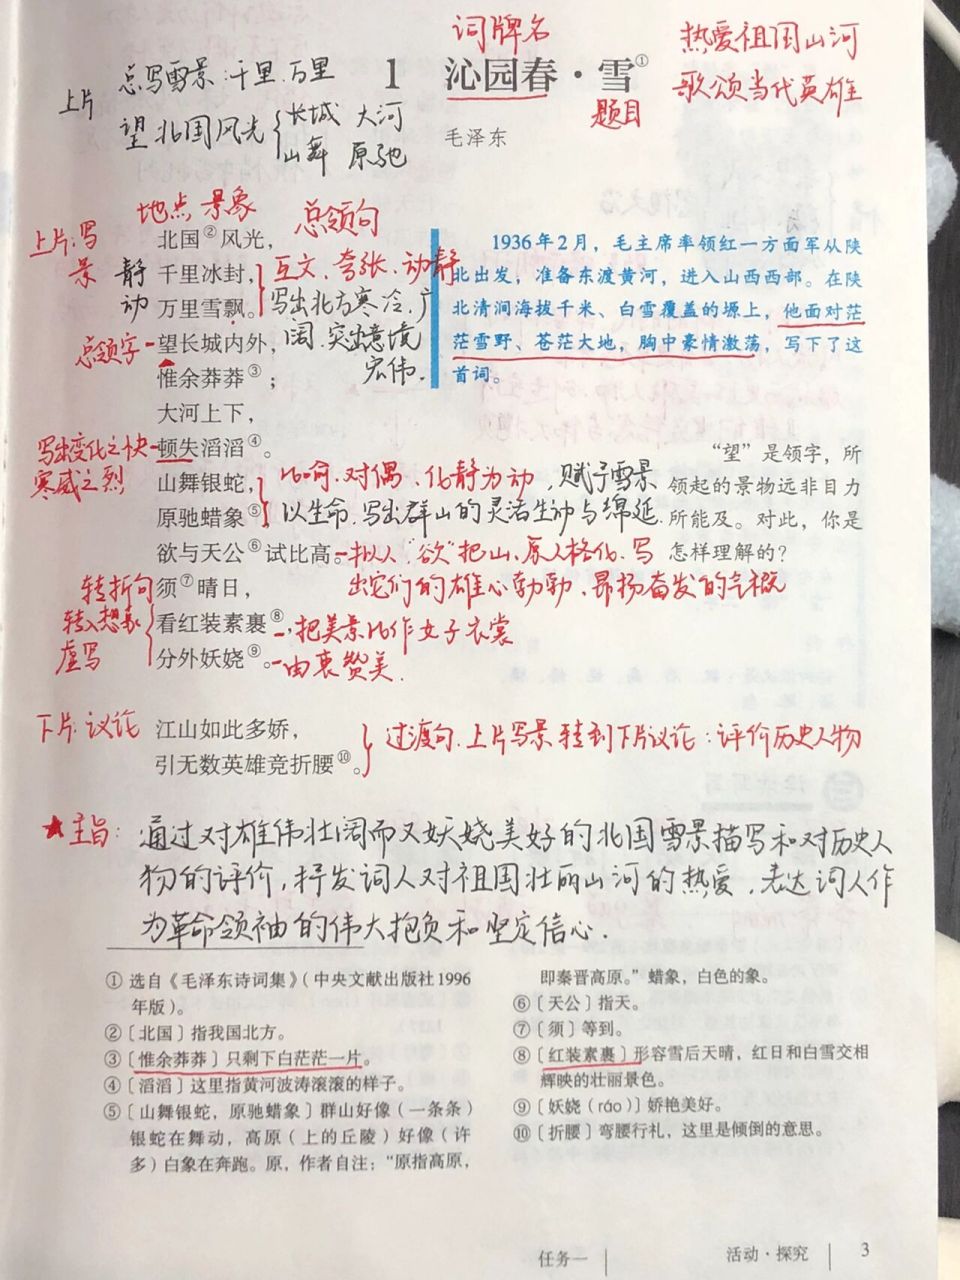 词牌名
热爱祖国山河
总写雪景:千里 万里
1 沁园春·雪①
歌颂当代英雄
上片
望 北国风光 长城 大河
山舞 原驰
题目
毛泽东
地点 景象
总领句
上片:写
景
北国②风光,
静
千里冰封,
互文、夸张、动静
动
万里雪飘。
写出北方寒冷、广
总领字-望长城内外,
阔,突出意境
宏伟.
惟余莽莽③;
大河上下,
1936年2月,毛主席率领红一方面军从陕
北出发,准备东渡黄河,进入山西西部。在陕
北清涧海拔千米、白雪覆盖的塬上,他面对茫
茫雪野、苍茫大地,胸中豪情激荡,写下了这
首词。
写出变化之快-顿失滔滔④。
寒威之烈
山舞银蛇,
比喻、对偶、化静为动,赋予雪景
原驰蜡象⑤,
以生命.写出群山的灵活生动与绵延.
欲与天公⑥试比高。-拟人、“欲”把山、原人格化、写
出它们的雄心勃勃、昂扬奋发的气概
“望”是领字,所
领起的景物远非目力
所能及。对此,你是
怎样理解的?
转折句
须⑦晴日,
转入想象
看红装素裹⑧,-把美景比作女子衣裳
虚写
分外妖娆⑨。-由衷赞美.
下片:议论
江山如此多娇,
引无数英雄竞折腰⑩。
过渡句.上片写景转到下片议论:评价历史人物
★主旨:通过对雄伟壮阔而又妖娆美好的北国雪景描写和对历史人
物的评价,抒发词人对祖国壮丽山河的热爱,表达词人作
为革命领袖的伟大抱负和坚定信心.
① 选自《毛泽东诗词集》(中央文献出版社1996
年版)。
②〔北国〕指我国北方。
③〔惟余莽莽〕只剩下白茫茫一片。
④〔滔滔〕这里指黄河波涛滚滚的样子。
⑤〔山舞银蛇,原驰蜡象〕群山好像(一条条)
银蛇在舞动,高原(上的丘陵)好像(许
多)白象在奔跑。原,作者自注:“原指高原,
即秦晋高原。”蜡象,白色的象。
⑥〔天公〕指天。
⑦〔须〕等到。
⑧〔红装素裹〕形容雪后天晴,红日和白雪交相
辉映的壮丽景色。
⑨〔妖娆(ráo)〕娇艳美好。
⑩〔折腰〕弯腰行礼,这里是倾倒的意思。
任务一
活动·探究
3